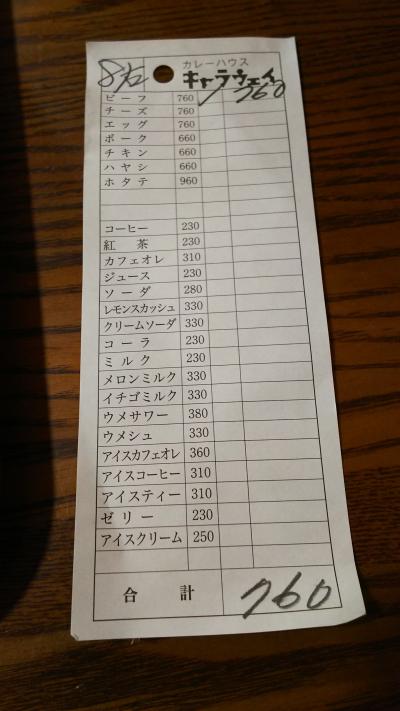 8左 カレーハウス
キャラウェイ
ビーフ 760 1 760
チーズ 760
エッグ 760
ポーク 660
チキン 660
ハヤシ 660
ホタテ 960
コーヒー 230
紅茶 230
カフェオレ 310
ジュース 230
ソーダ 280
レモンスカッシュ 330
クリームソーダ 330
コーラ 230
ミルク 230
メロンミルク 330
イチゴミルク 330
ウメサワー 380
ウメシュ 330
アイスカフェオレ 360
アイスコーヒー 310
アイスティー 310
ゼリー 230
アイスクリーム 250
合計 760